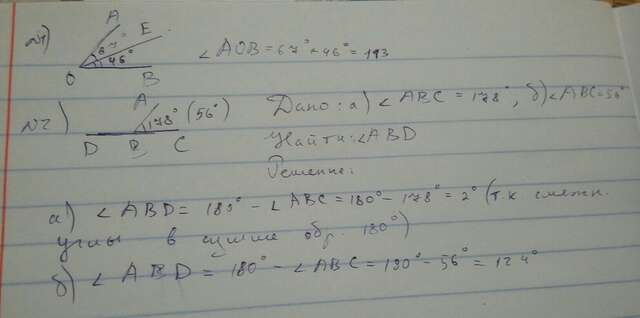 №1) A E 67° 46° O B ∠AOB = 67° + 46° = 113
№2) A 178° (56°) D B C Дано: а) ∠ABC = 178°, б) ∠ABC = 56°
Найти: ∠ABD
Решение:
а) ∠ABD = 180° - ∠ABC = 180° - 178° = 2° (т.к смежн.
углы в сумме обр. 180°)
б) ∠ABD = 180° - ∠ABC = 180° - 56° = 124°